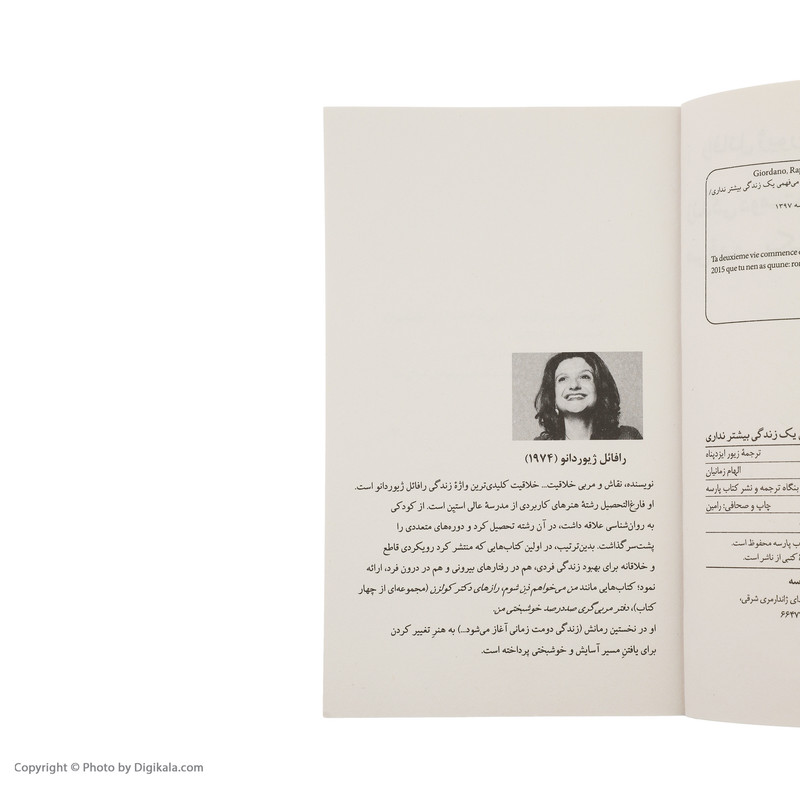 رافائل ژیوردانو (۱۹۷۴)
نویسنده، نقاش و مربی خلاقیت... خلاقیت کلیدی‌ترین واژهٔ زندگی رافائل ژیوردانو است.
او فارغ‌التحصیل رشتهٔ هنرهای کاربردی از مدرسهٔ عالی استین است. از کودکی
به روان‌شناسی علاقه داشت، در آن رشته تحصیل کرد و دوره‌های متعددی را
پشت‌سر گذاشت. بدین‌ترتیب، در اولین کتاب‌هایی که منتشر کرد رویکردی قاطع
و خلاقانه برای بهبود زندگی فردی، هم در رفتارهای بیرونی و هم در درون فرد، ارائه
نمود؛ کتاب‌هایی مانند من می‌خواهم ذِن شوم، رازهای دکتر کولزن (مجموعه‌ای از چهار
کتاب)، دفتر مربی‌گری صددرصد خوشبختی من.
او در نخستین رمانش (زندگی دومت زمانی آغاز می‌شود...) به هنرِ تغییر کردن
برای یافتنِ مسیر آسایش و خوشبختی پرداخته است.
Giordano, Rap
می‌فهمی یک زندگی بیشتر نداری/
۱۳۹۷
Ta deuxieme vie commence
2015 que tu nen as quune: ro
یک زندگی بیشتر نداری
ترجمهٔ زیور ایزدپناه
الهام زمانیان
بنگاه ترجمه و نشر کتاب پارسه
چاپ و صحافی: رامین
پارسه محفوظ است.
کتبی از ناشر است.
سه
ژاندارمری شرقی،
۶۶۴۷
Copyright © Photo by Digikala.com